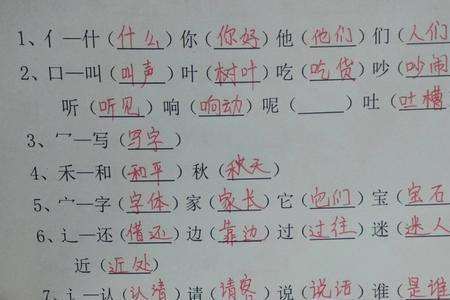 1、亻—什（什么）你（你好）他（他们）们（人们
2、口—叫（叫声）叶（树叶）吃（吃货）吵（吵闹
听（听见）响（响动）呢（____）吐（吐槽
3、冖—写（写字）
4、禾—和（和平）秋（秋天）
5、宀—字（字体）家（家长）它（它们）宝（宝石
6、辶—还（借还）边（靠边）过（过往）迷（迷人
近（近处）
7、讠—认（认清）请（请客）说（说话）谁（是谁